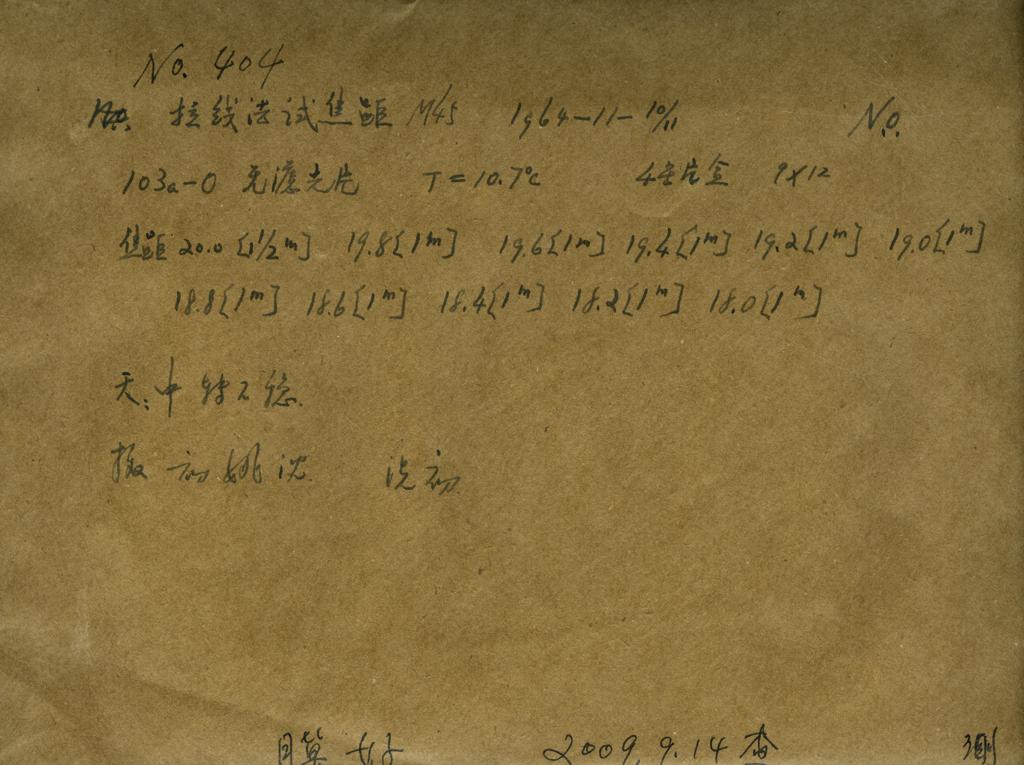 No. 404
拉线法试焦距 M45 1964-11-10/11 No.
103a-O 无滤光片 T=10.7°C 4号片盒 9×12
焦距 20.0 [1 1/2 m] 19.8 [1m] 19.6 [1m] 19.4 [1m] 19.2 [1m] 19.0 [1m]
18.8 [1m] 18.6 [1m] 18.4 [1m] 18.2 [1m] 18.0 [1m]
天: 中 转不稳.
摄 初 姚 沈. 洗 初
膜 好 2009.9.14 查 测